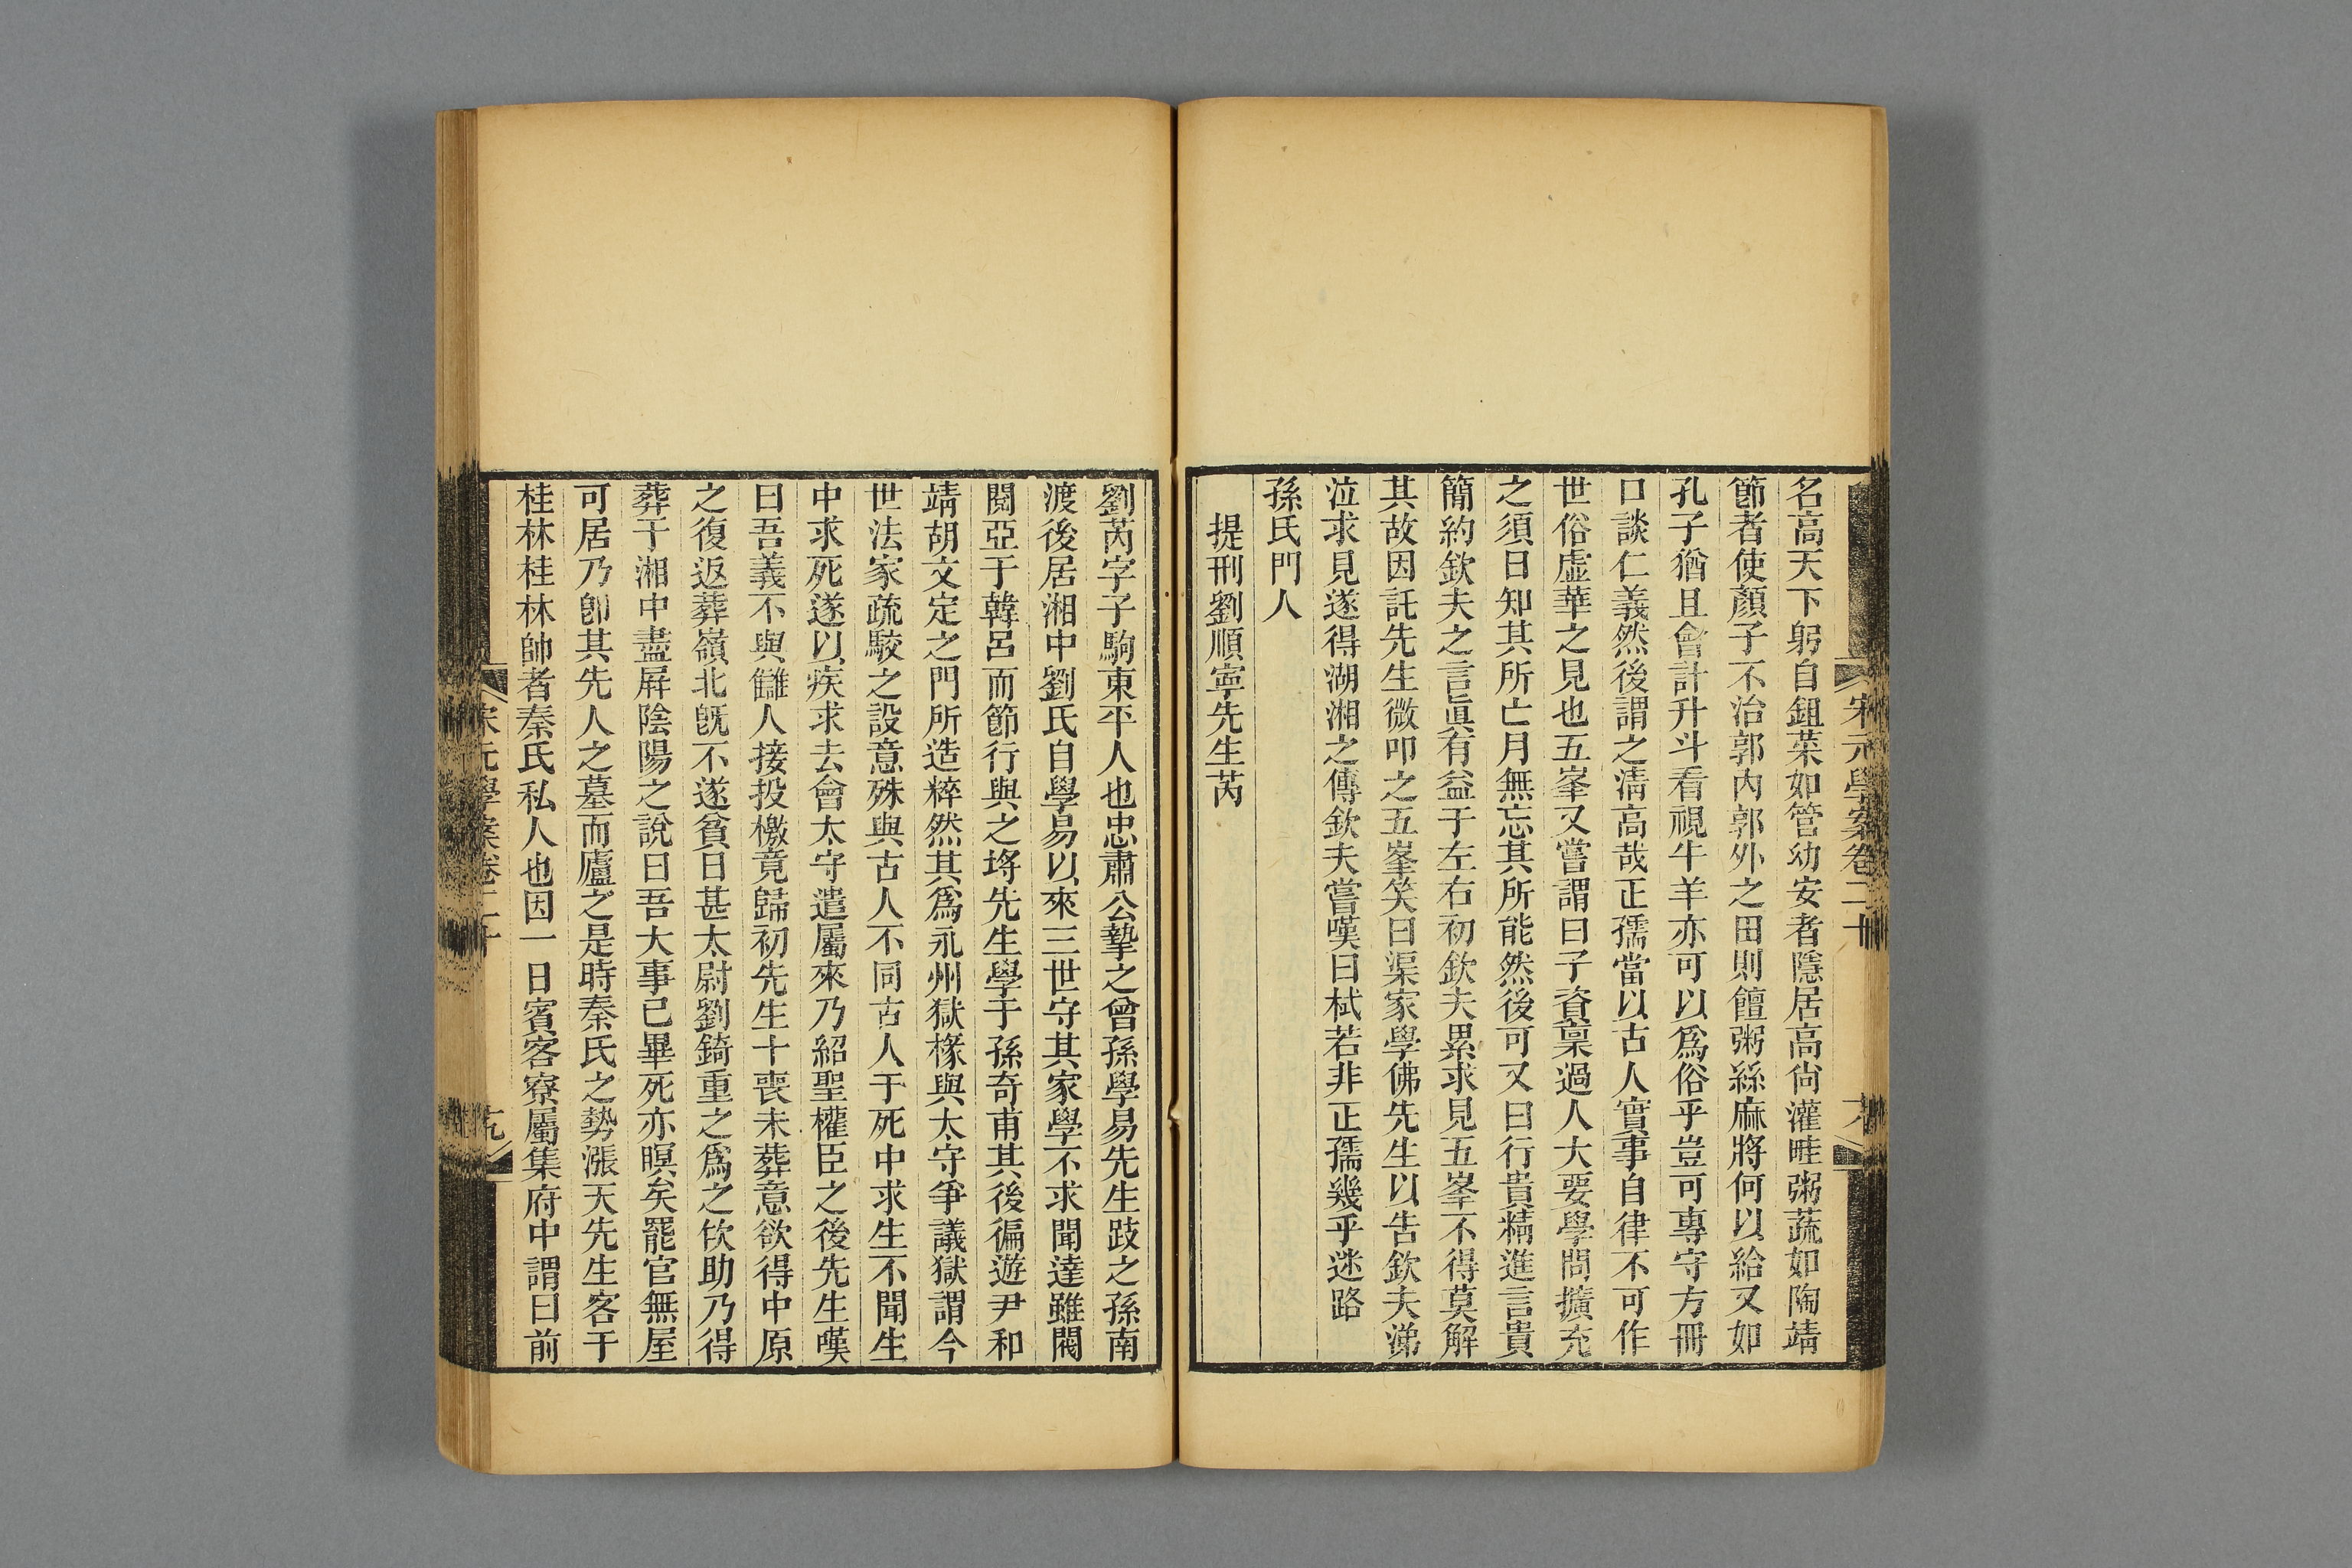 宋元學案卷二十
名高天下躬自鉏菜如管幼安者隱居高尙灌畦粥蔬如陶靖
節者使顏子不治郭內郭外之田則饘粥絲麻將何以給又如
孔子猶且會計升斗看視牛羊亦可以爲俗乎豈可專守方冊
口談仁義然後謂之淸高哉正孺當以古人實事自律不可作
世俗虛華之見也五峯又嘗謂曰子資稟過人大要學問擴充
之須日知其所亡月無忘其所能然後可又曰行貴精進言貴
簡約欽夫之言眞有益于左右初欽夫累求見五峯不得莫解
其故因託先生微叩之五峯笑曰渠家學佛先生以告欽夫涕
泣求見遂得湖湘之傳欽夫嘗嘆曰栻若非正孺幾乎迷路
孫氏門人
提刑劉順寧先生芮
劉芮字子駒東平人也忠肅公摯之曾孫學易先生跂之孫南
渡後居湘中劉氏自學易以來三世守其家學不求聞達雖閥
閱亞于韓呂而節行與之埒先生學于孫奇甫其後徧遊尹和
靖胡文定之門所造粹然其爲永州獄椽與太守爭議獄謂今
世法家疏駮之設意殊與古人不同古人于死中求生不聞生
中求死遂以疾求去會太守遣屬來乃紹聖權臣之後先生嘆
曰吾義不與讎人接投檄竟歸初先生十喪未葬意欲得中原
之復返葬嶺北旣不遂貧日甚太尉劉錡重之爲之佽助乃得
葬于湘中盡屛陰陽之說曰吾大事已畢死亦瞑矣罷官無屋
可居乃卽其先人之墓而廬之是時秦氏之勢漲天先生客于
桂林桂林帥者秦氏私人也因一日賓客寮屬集府中謂曰前
宋元學案卷二十